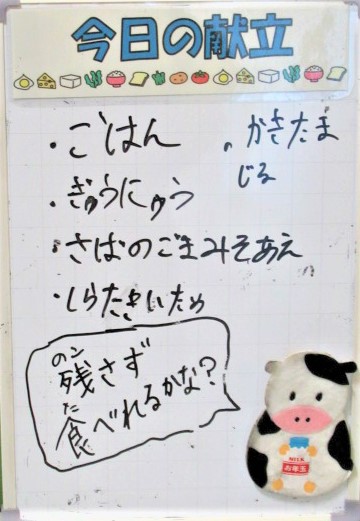 今日の献立
・ごはん
・ぎゅうにゅう
・さばのごまみそあえ
・しらたきいため
・かきたま
じる
のこ
残さず
た
食べれるかな?
MILK
お年玉